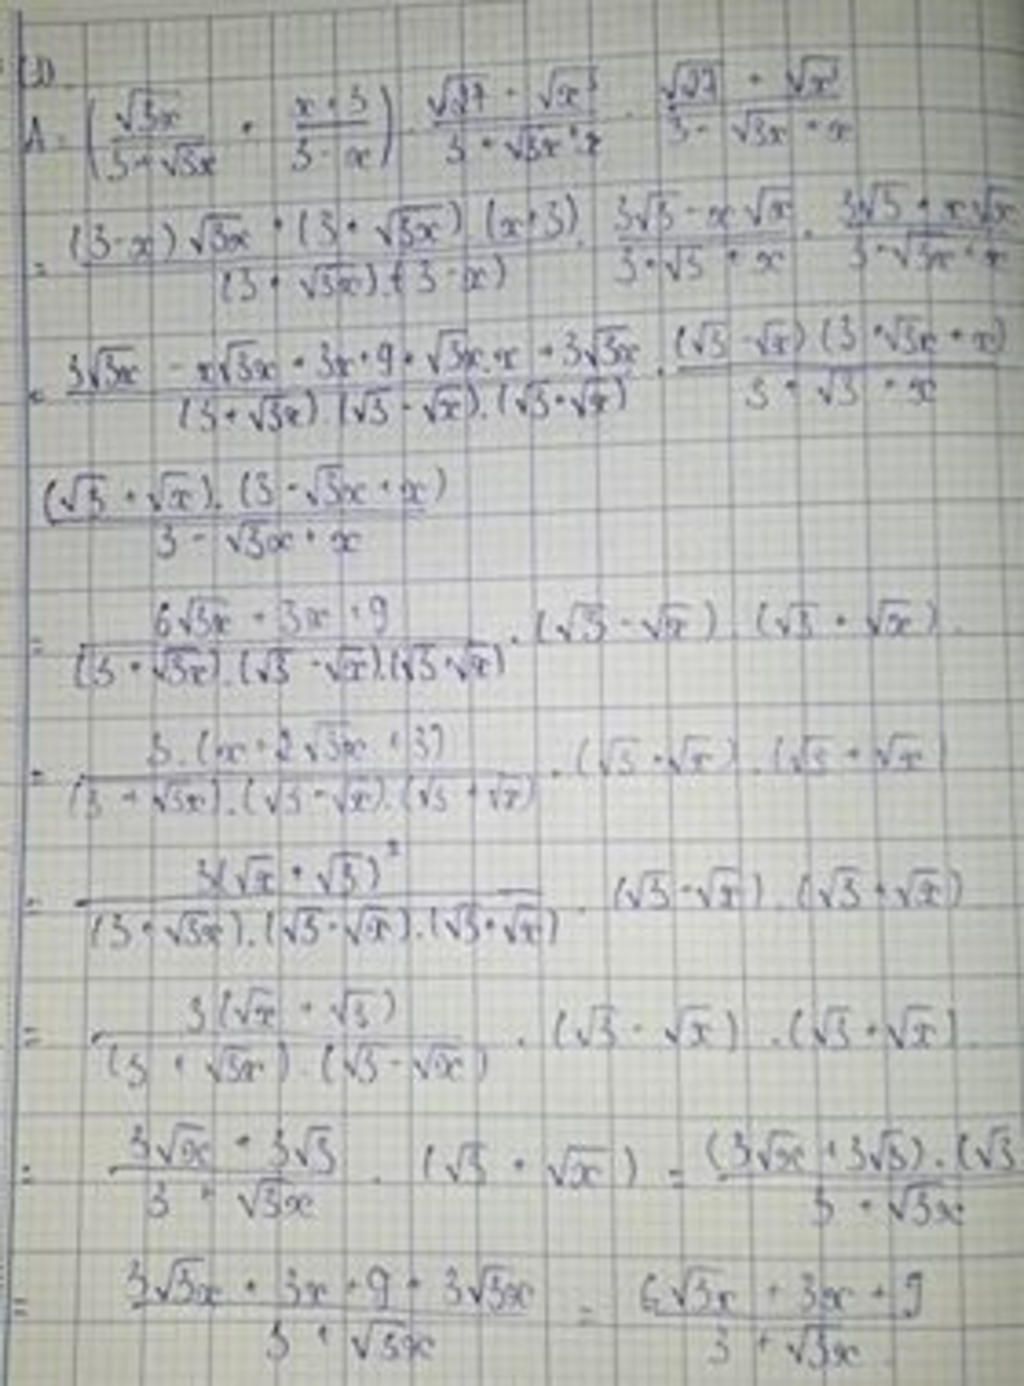 A = (√3x / 3 + √3x + x + 3 / 3 - x) . √27 - √x³ / 3 + √3x + x . √27 + √x³ / 3 - √3x + x
= (3 - x) √3x + (3 + √3x) (x + 3) / (3 + √3x) . (3 - x) . 3√3 - x√x / 3 + √3 + x . 3√3 + x√x / 3 - √3x + x
= 3√3x - x√3x + 3x + 9 + √3x . x + 3√3x / (3 + √3x) . (√3 - √x) . (√3 + √x) . (√3 - √x) (3 + √3x + x) / 3 + √3 + x
(√3 + √x) . (3 - √3x + x) / 3 - √3x + x
= 6√3x + 3x + 9 / (3 + √3x) . (√3 - √x) . (√3 + √x) . (√3 - √x) . (√3 + √x)
= 3 . (x + 2√3x + 3) / (3 + √3x) . (√3 - √x) . (√3 + √x) . (√3 - √x) . (√3 + √x)
= 3(√x + √3)² / (3 + √3x) . (√3 - √x) . (√3 + √x) . (√3 - √x) . (√3 + √x)
= 3(√x + √3) / (3 + √3x) . (√3 - √x) . (√3 - √x) . (√3 + √x)
= 3√x + 3√3 / 3 + √3x . (√3 + √x) = (3√x + 3√3) . (√3 / 3 + √3x
= 3√3x + 3x + 9 + 3√3x / 3 + √3x = 6√3x + 3x + 9 / 3 + √3x